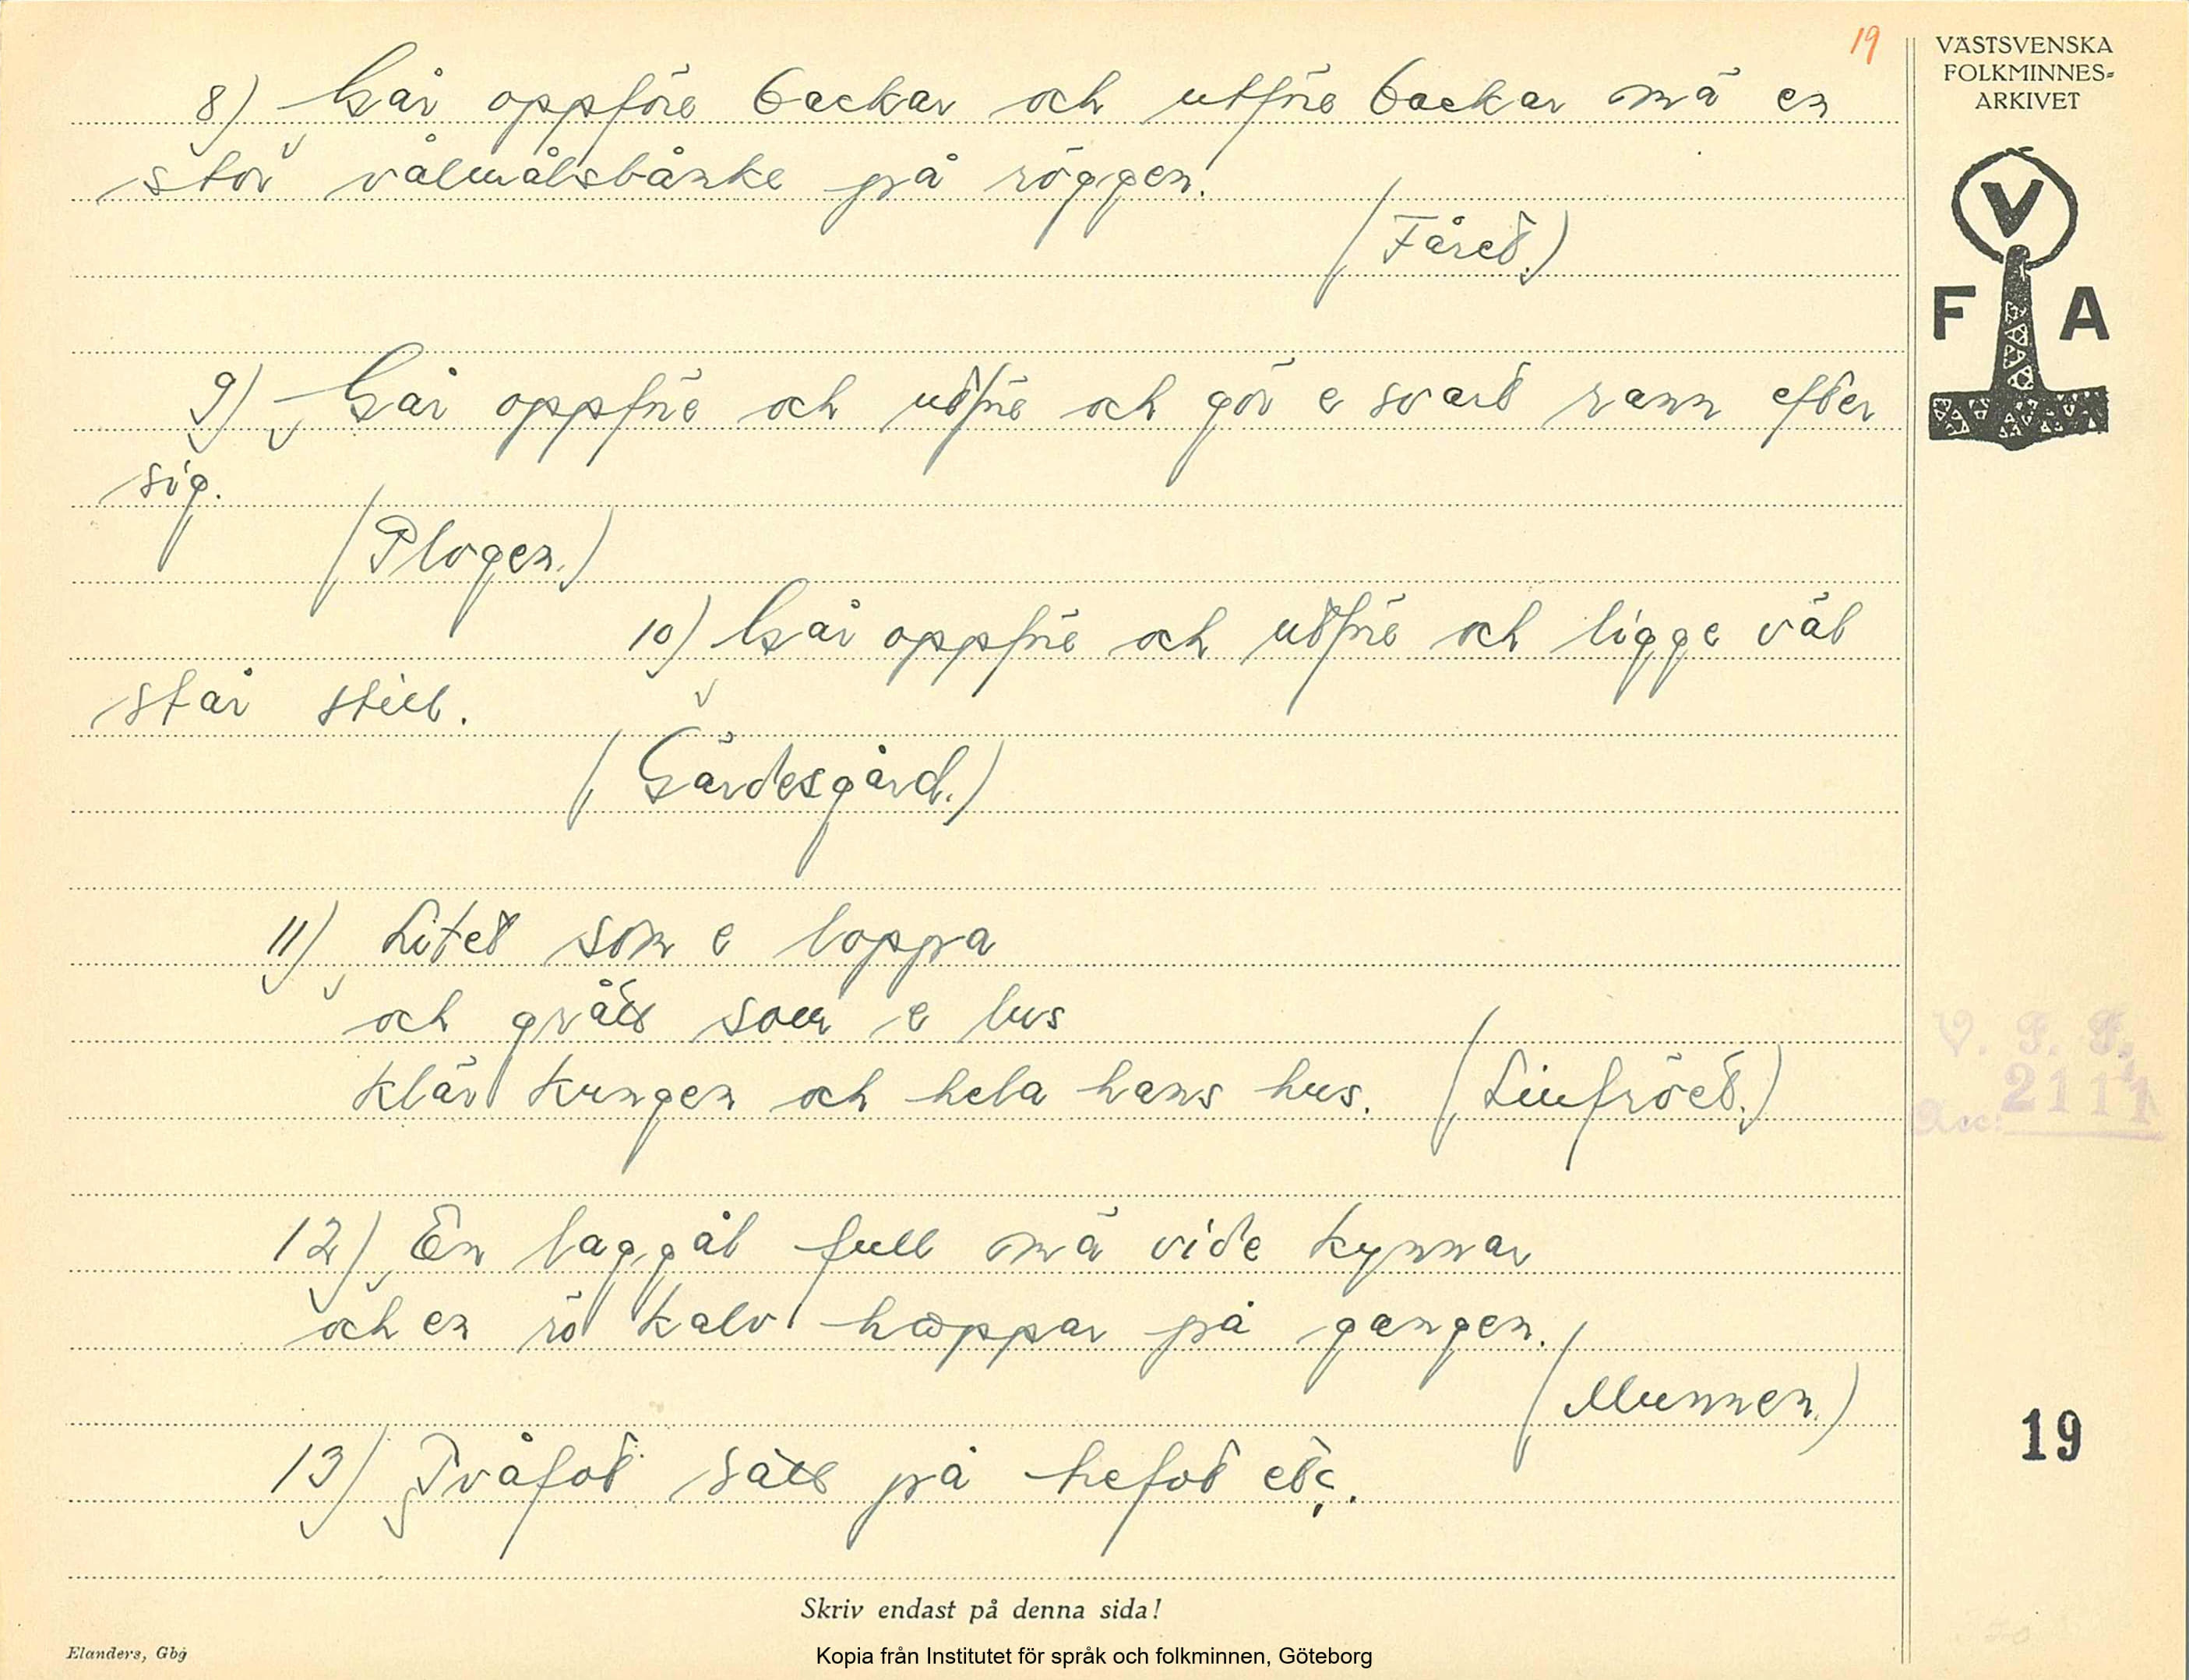 19
VÄSTSVENSKA
FOLKMINNES-
ARKIVET
V
F A
8) Går oppföre backar och utföre backar mä en
stor vålmålsbånke på röggen.
(Fåret.)
9) Går oppföre och utföre och gör e svart rann efter
sig.
(Plogen.)
10) Går oppföre och utföre och ligge väl
står still.
(Gärdesgård.)
11) Litet som e loppa
och grått som e lus
klär kungen och hela hans hus. (Linfröet.)
12) En laggål full mä vide kynnar
och en rö kalv hoppar på gangen.
(Munnen.)
13) Tvåfot satt på trefot etc.
V. F. F.
Acc: 2111
19
Skriv endast på denna sida!
Elanders, Gbg
Kopia från Institutet för språk och folkminnen, Göteborg